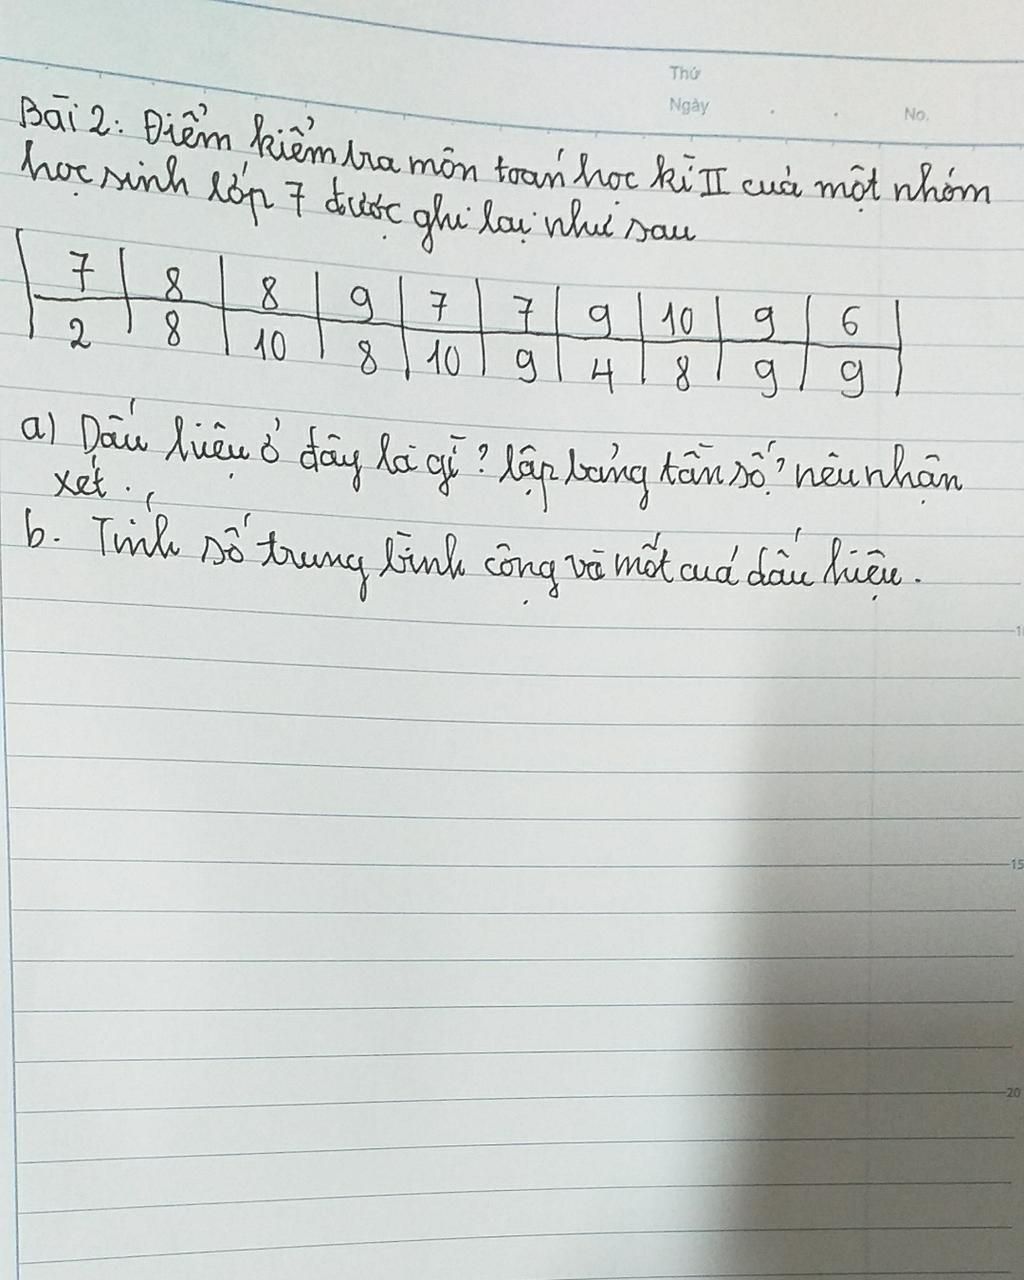 Thứ
Ngày . . No.
Bài 2: Điểm kiểm tra môn toán học kì II của một nhóm
học sinh lớp 7 được ghi lại như sau
7 8 8 9 7 7 9 10 9 6
2 8 10 8 10 9 4 8 9 9
a) Dấu hiệu ở đây là gì? lập bảng tần số? nêu nhận
xét.
b. Tính số trung bình cộng và mốt của dấu hiệu.
15
20